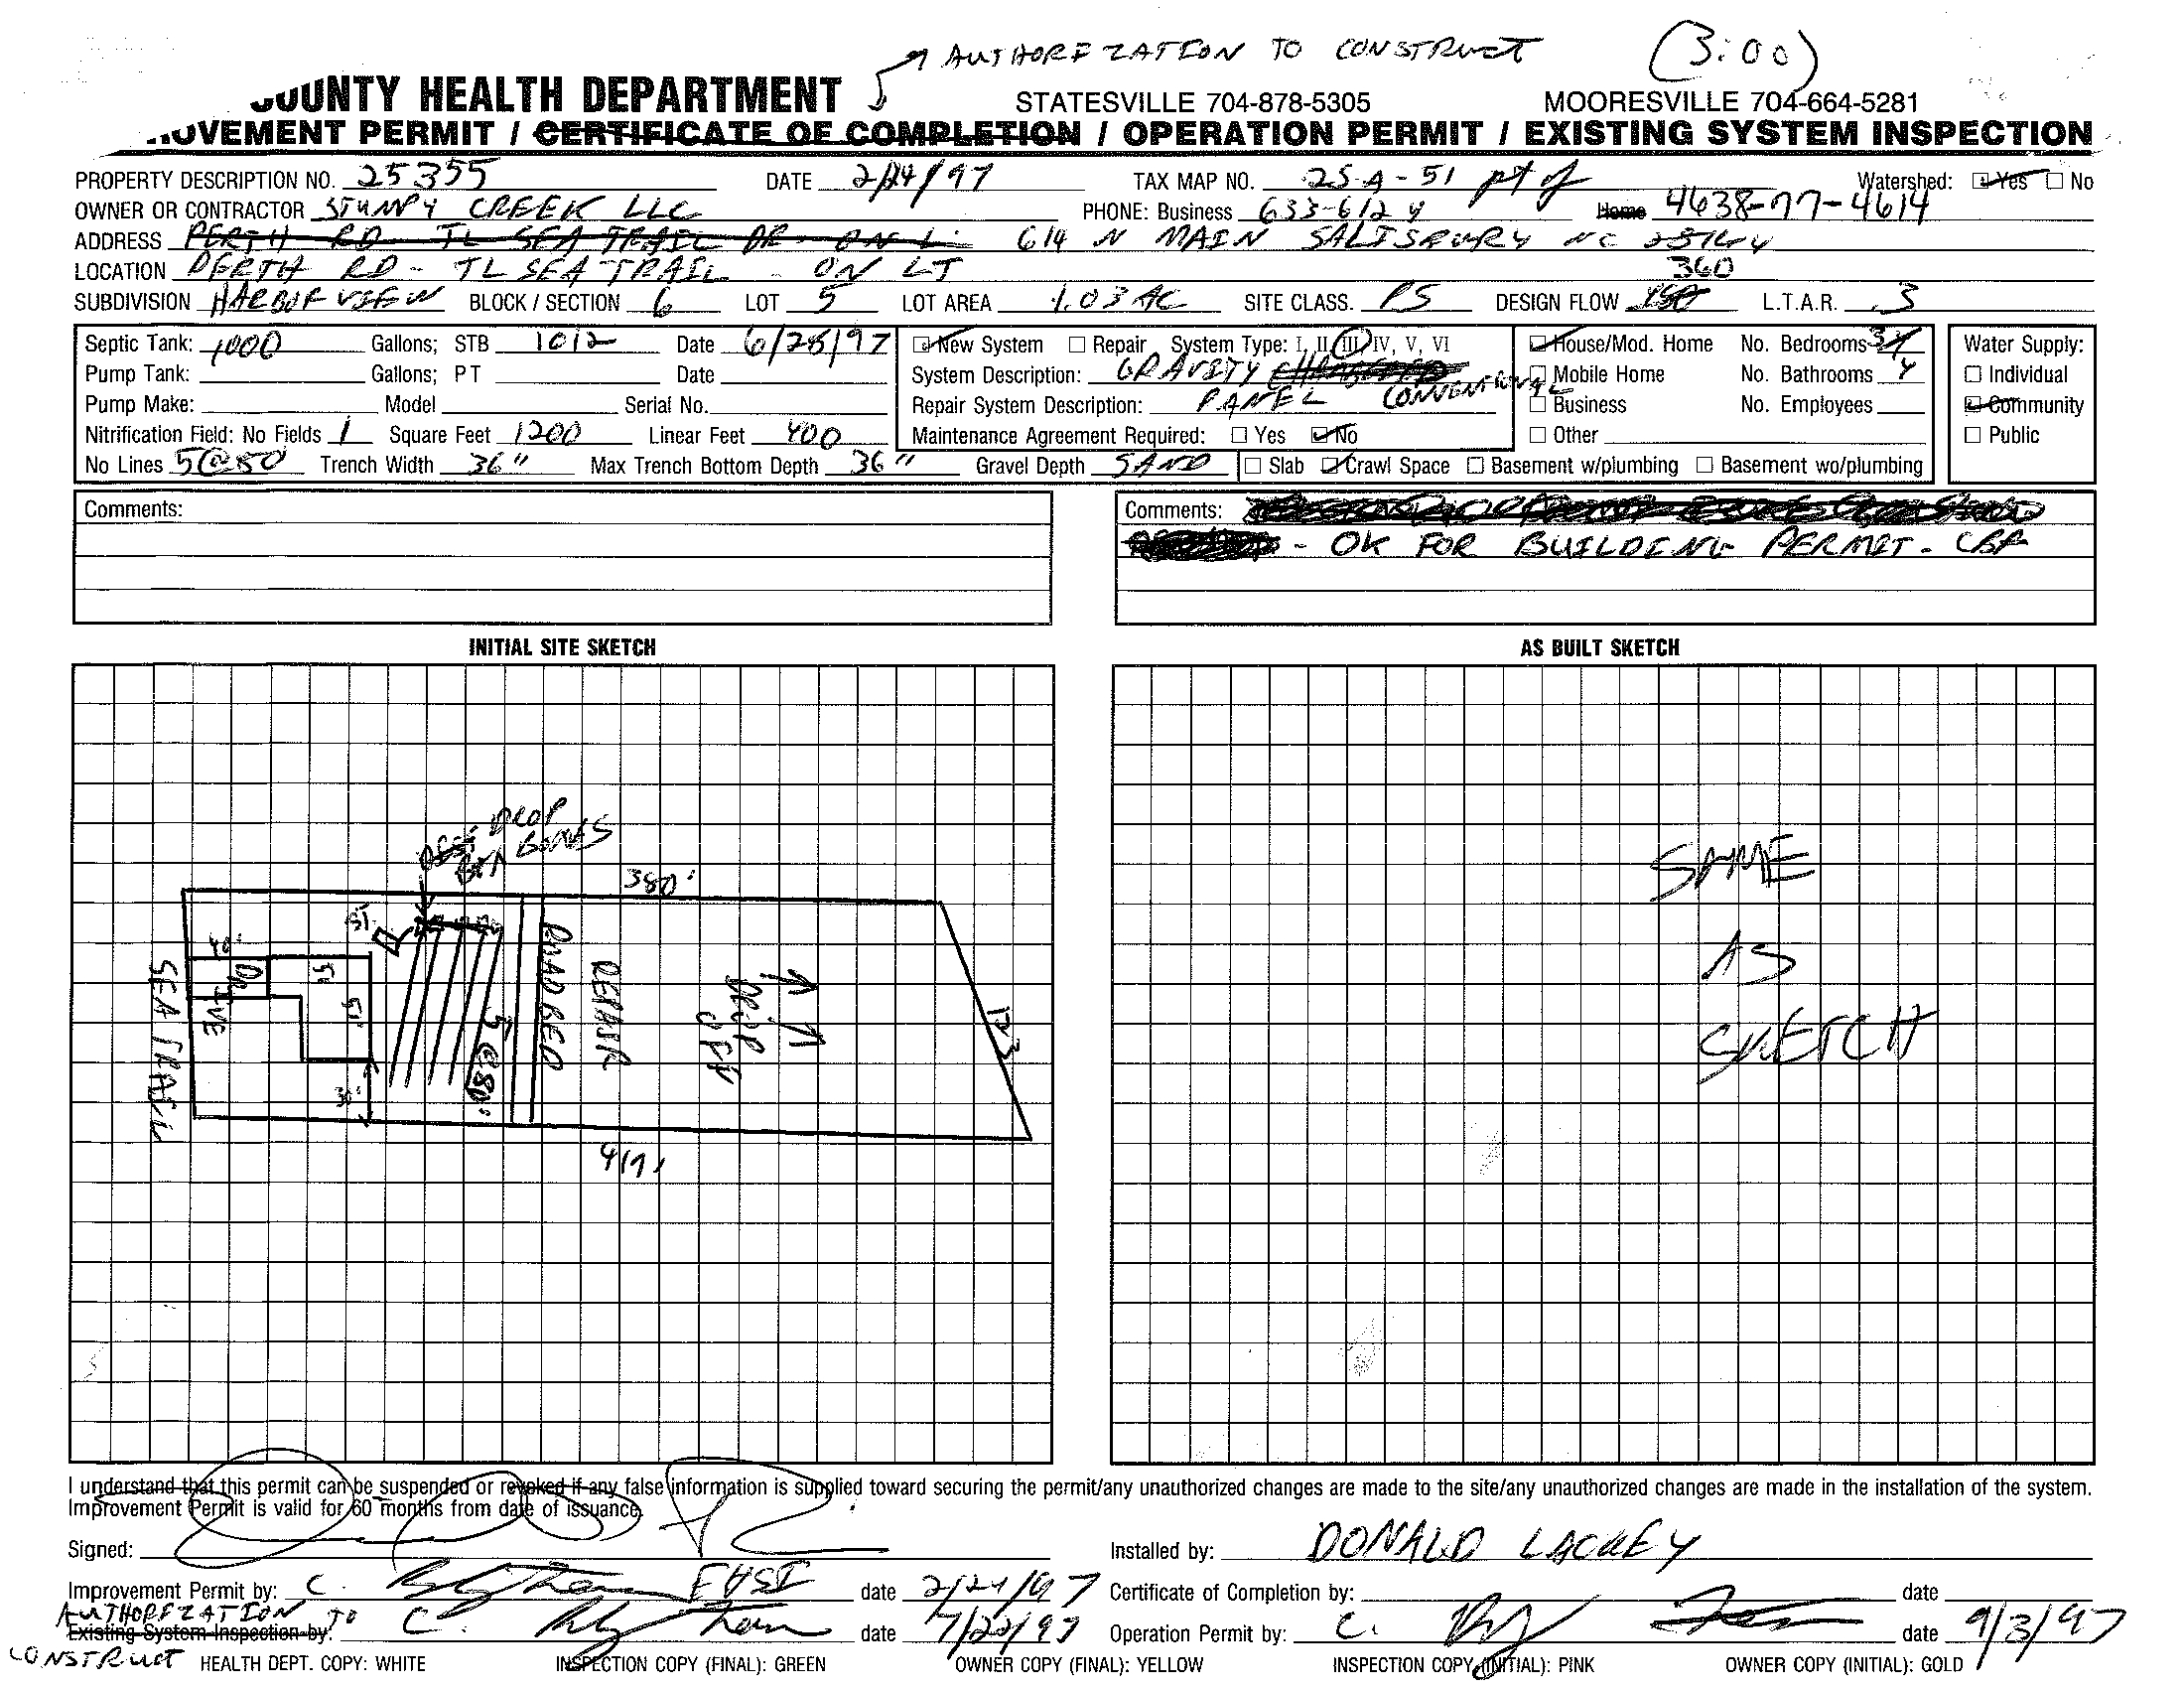 AUTHORIZATION TO CONSTRUCT (3:00)
COUNTY HEALTH DEPARTMENT STATESVILLE 704-878-5305 MOORESVILLE 704-664-5281
OVEMENT PERMIT / CERTIFICATE OF COMPLETION / OPERATION PERMIT / EXISTING SYSTEM INSPECTION
PROPERTY DESCRIPTION NO. 25355 DATE 2/24/97 TAX MAP NO. 25-A-51 pt of Watershed: Yes No
OWNER OR CONTRACTOR STUMPY CREEK LLC PHONE: Business 633-6124 Home 4638-77-4614
ADDRESS PERTH RD TL SEA TRAIL DR ON L 614 N MAIN SALISBURY NC 28144
LOCATION PERTH RD - TL SEA TRAIL - ON LT 360
SUBDIVISION HARBOR VIEW BLOCK / SECTION 6 LOT 5 LOT AREA 1.03 AC SITE CLASS. PS DESIGN FLOW L.T.A.R. .3
Septic Tank: 1000 Gallons; STB 1012 Date 6/25/97 New System Repair System Type: I, II, III, IV, V, VI House/Mod. Home No. Bedrooms 3 Water Supply:
Pump Tank: Gallons; PT Date System Description: GRAVITY CONVENTIONAL Mobile Home No. Bathrooms 4 Individual
Pump Make: Model Serial No. Repair System Description: PANEL Business No. Employees Community
Nitrification Field: No Fields 1 Square Feet 1200 Linear Feet 400 Maintenance Agreement Required: Yes No Other Public
No Lines 5@80 Trench Width 36" Max Trench Bottom Depth 36" Gravel Depth SAND Slab Crawl Space Basement w/plumbing Basement wo/plumbing
Comments:
Comments:
- OK FOR BUILDING PERMIT - CBF
INITIAL SITE SKETCH
AS BUILT SKETCH
DROP
BOXES
BOX
380'
ST
40'
DRIVE
51'
30'
SEA TRAIL
5 @ 80'
ROAD BED
REPAIR
DROP
OFF
123
417'
SAME
AS
SKETCH
I understand that this permit can be suspended or revoked if any false information is supplied toward securing the permit/any unauthorized changes are made to the site/any unauthorized changes are made in the installation of the system.
Improvement Permit is valid for 60 months from date of issuance.
Signed:
Installed by: DONALD LACKEY
Improvement Permit by: C. EHSI date 2/24/97 Certificate of Completion by: date
AUTHORIZATION TO
Existing System Inspection by: C. date 7/22/97 Operation Permit by: C. date 9/3/97
CONSTRUCT HEALTH DEPT. COPY: WHITE INSPECTION COPY (FINAL): GREEN OWNER COPY (FINAL): YELLOW INSPECTION COPY (INITIAL): PINK OWNER COPY (INITIAL): GOLD